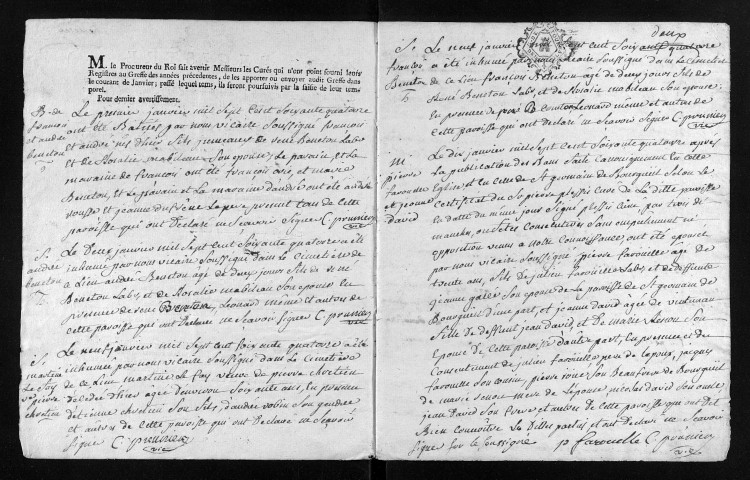 M. le Procureur du Roi fait avenir Messieurs les Curés qui n'ont point fourni leurs
Registres au Greffe des années précédentes, de les apporter ou envoyer audit Greffe dans
le courant de Janvier; passé lequel tems, ils seront poursuivis par la saisie de leur tem-
porel.
Pour dernier avertissement.
B. de Le premier janvier mil Sept Cent Soixante quatorze
françois ont été Batisés par nous vicaire Soussigné françois
et andré et andré nés d'hier fils jumeaux de rené Beneton Labr
beneton et de Rosalie mabileau Son epouse; Le parain, et La
maraine de françois ont été françois et marie
Beneton, et Le parain et La maraine d'andré ont été andré
et jeanne Le pere present tous de cette
paroisse qui ont Declaré ne Scavoir Signer C. prunier
vic
S. Le Deux janvier mil Sept Cent Soixante quatorze a été
andré inhumé par nous vicaire Soussigné dans Le cimetiere de
beneton ce Lieu andré Beneton agé de deux jours fils de rené
Beneton Labr, et de Rosalie mabileau Son epouse en
presence de rené Beneton, Leonard même et autres de
cette paroisse qui ont Declaré ne Scavoir Signer C. prunier
vic
S. Le neuf janvier mil Sept Cent Soixante quatorze a été
martine inhumée par nous vicaire Soussigné dans Le Cimetiere
Le fay de ce Lieu martine Le fay veuve de pierre chretien
ve pierre agée d'environ Soixante ans, en presence
chretien d'etienne chretien Son fils, d'andré robin Son gendre
et autres de cette paroisse qui ont Declaré ne Scavoir
Signer C. prunier
vic
deux
S. Le neuf janvier mil Sept Cent Soixante quatorze
françois a été inhumé par nous vicaire Soussigné dans Le Cimetiere
Beneton de ce Lieu françois Beneton agé de deux jours fils de
René Beneton Labr, et de Rosalie mabileau Son epouse
en presence de Leonard même et autres de
cette paroisse qui ont declaré ne Scavoir Signer C. prunier
vic
M. Le dix janvier mil Sept Cent Soixante quatorze apres
pierre La publication des Bans faite Canoniquement en cette
farouelle Eglise et en celle de St germain de Bourgueil Selon Le
et jeanne Certificat du Sr pierre plessis Curé de La ditte paroisse
david en datte du même jour Signé plessis Curé par trois di-
manches, ou fêtes Consecutives Sans empechement ni
opposition venus a notre Connoissance, ont été epousés
par nous vicaire Soussigné pierre farouelle agé de
trente ans, fils de julien farouelle Labr, et de deffunte
jeanne Son epouse de La paroisse de St germain de
Bourgueil d'une part, et jeanne david agée de
fille de deffunt jean david, et de marie Son
Epouse de Cette paroisse d'autre part; en presence et du
Consentement de julien farouelle pere de L'epoux, jacques
farouelle Son cousin, pierre Son Beaufrere de Bourgueil
de marie mere de L'epouse, nicolas david Son oncle
jean David Son frere et autres de Cette paroisse qui ont Dit
Bien Connoitre Les Dittes parties et ont Declaré ne Scavoir
Signer Sur Ce Soussigné p farouelle C. prunier
vic